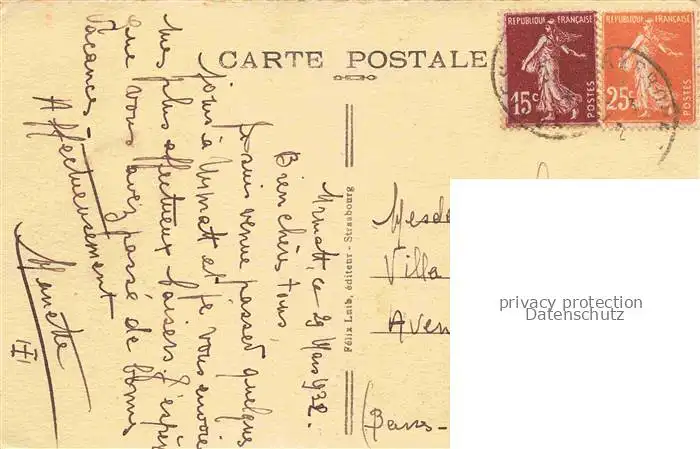 CARTE POSTALE
REPUBLIQUE FRANÇAISE
15c
POSTES
REPUBLIQUE FRANÇAISE
25c
POSTES
Urmatt, ce 29 Mars 1932.
Bien chers tous,
Je suis venue passer quelques
jours à Urmatt et je vous envoie
mes plus affectueux baisers. J'espère
que vous avez passé de bonnes
vacances -
Affectueusement
Nanette
Félix Luib, éditeur - Strasbourg
Mesde
Villa
Aven
(Bars-
privacy protection
Datenschutz